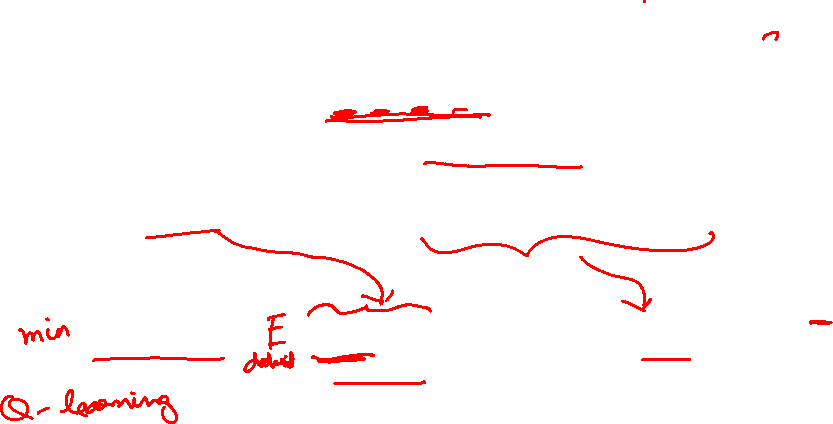 min E
dataset
Q-learning